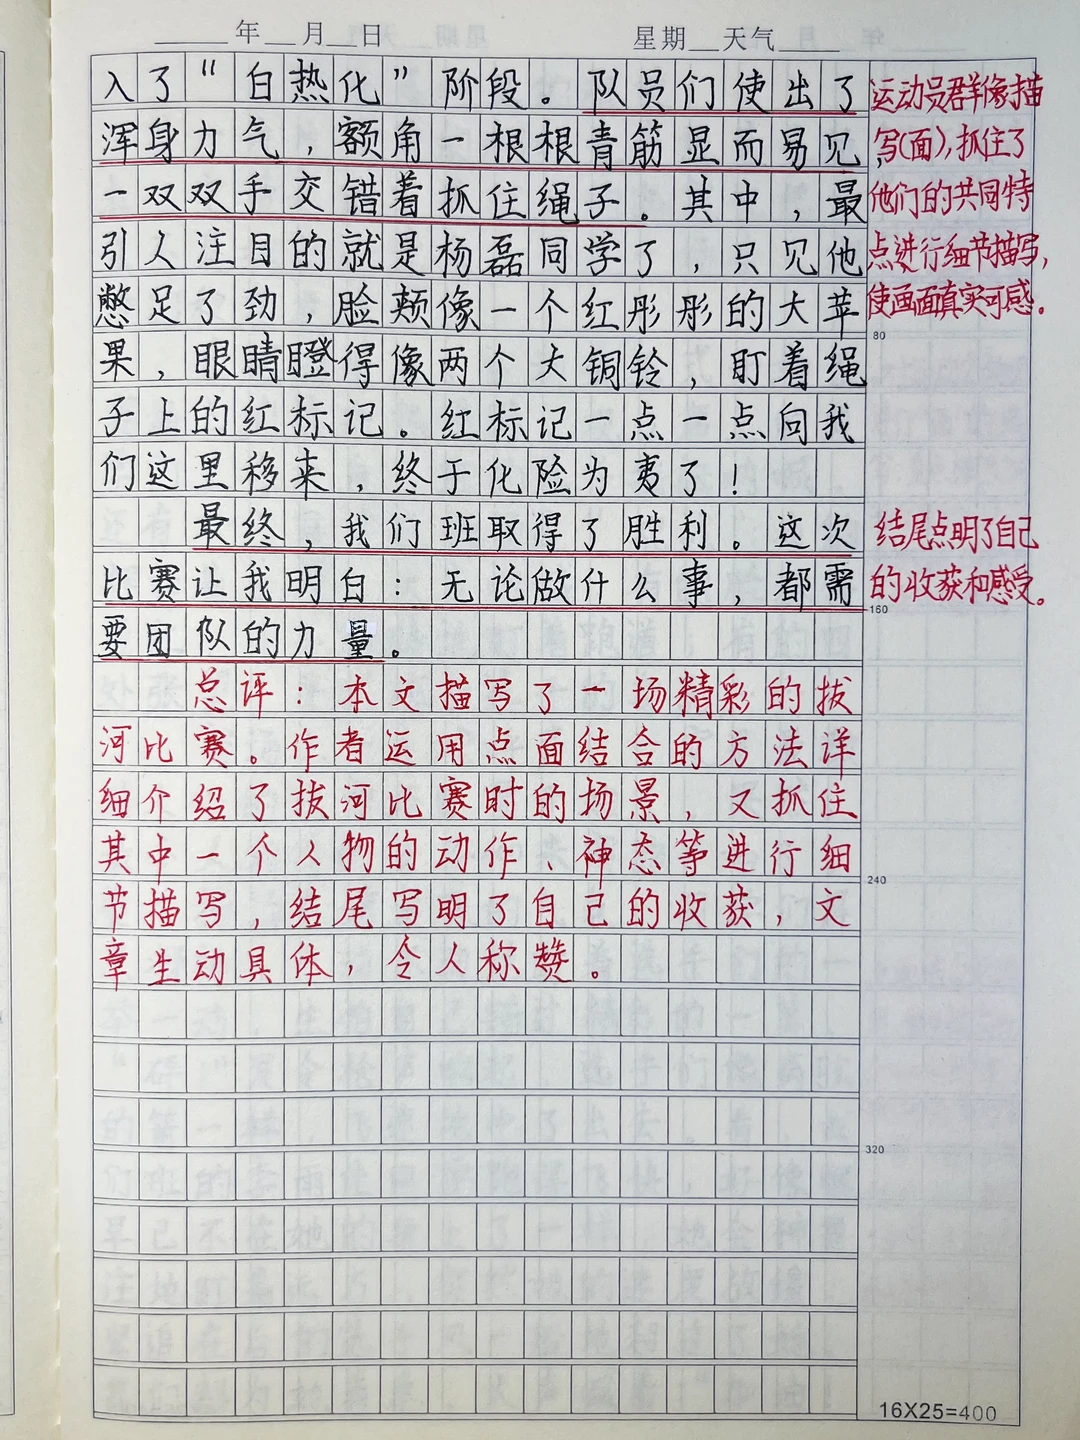 ____年__月__日 星期__天气____
入了“白热化”阶段。队员们使出了
浑身力气，额角一根根青筋显而易见，
一双双手交错着抓住绳子。其中，最
引人注目的就是杨磊同学了，只见他
憋足了劲，脸颊像一个红彤彤的大苹
果，眼睛瞪得像两个大铜铃，盯着绳
子上的红标记。红标记一点一点向我
们这里移来，终于化险为夷了！
最终，我们班取得了胜利。这次
比赛让我明白：无论做什么事，都需
要团队的力量。
总评：本文描写了一场精彩的拔
河比赛。作者运用点面结合的方法详
细介绍了拔河比赛时的场景，又抓住
其中一个人物的动作、神态等进行细
节描写，结尾写明了自己的收获，文
章生动具体，令人称赞。
运动员群像描
写(面),抓住了
他们的共同特
点进行细节描写,
使画面真实可感。
80
结尾点明了自己
的收获和感受。
160
240
320
16X25=400